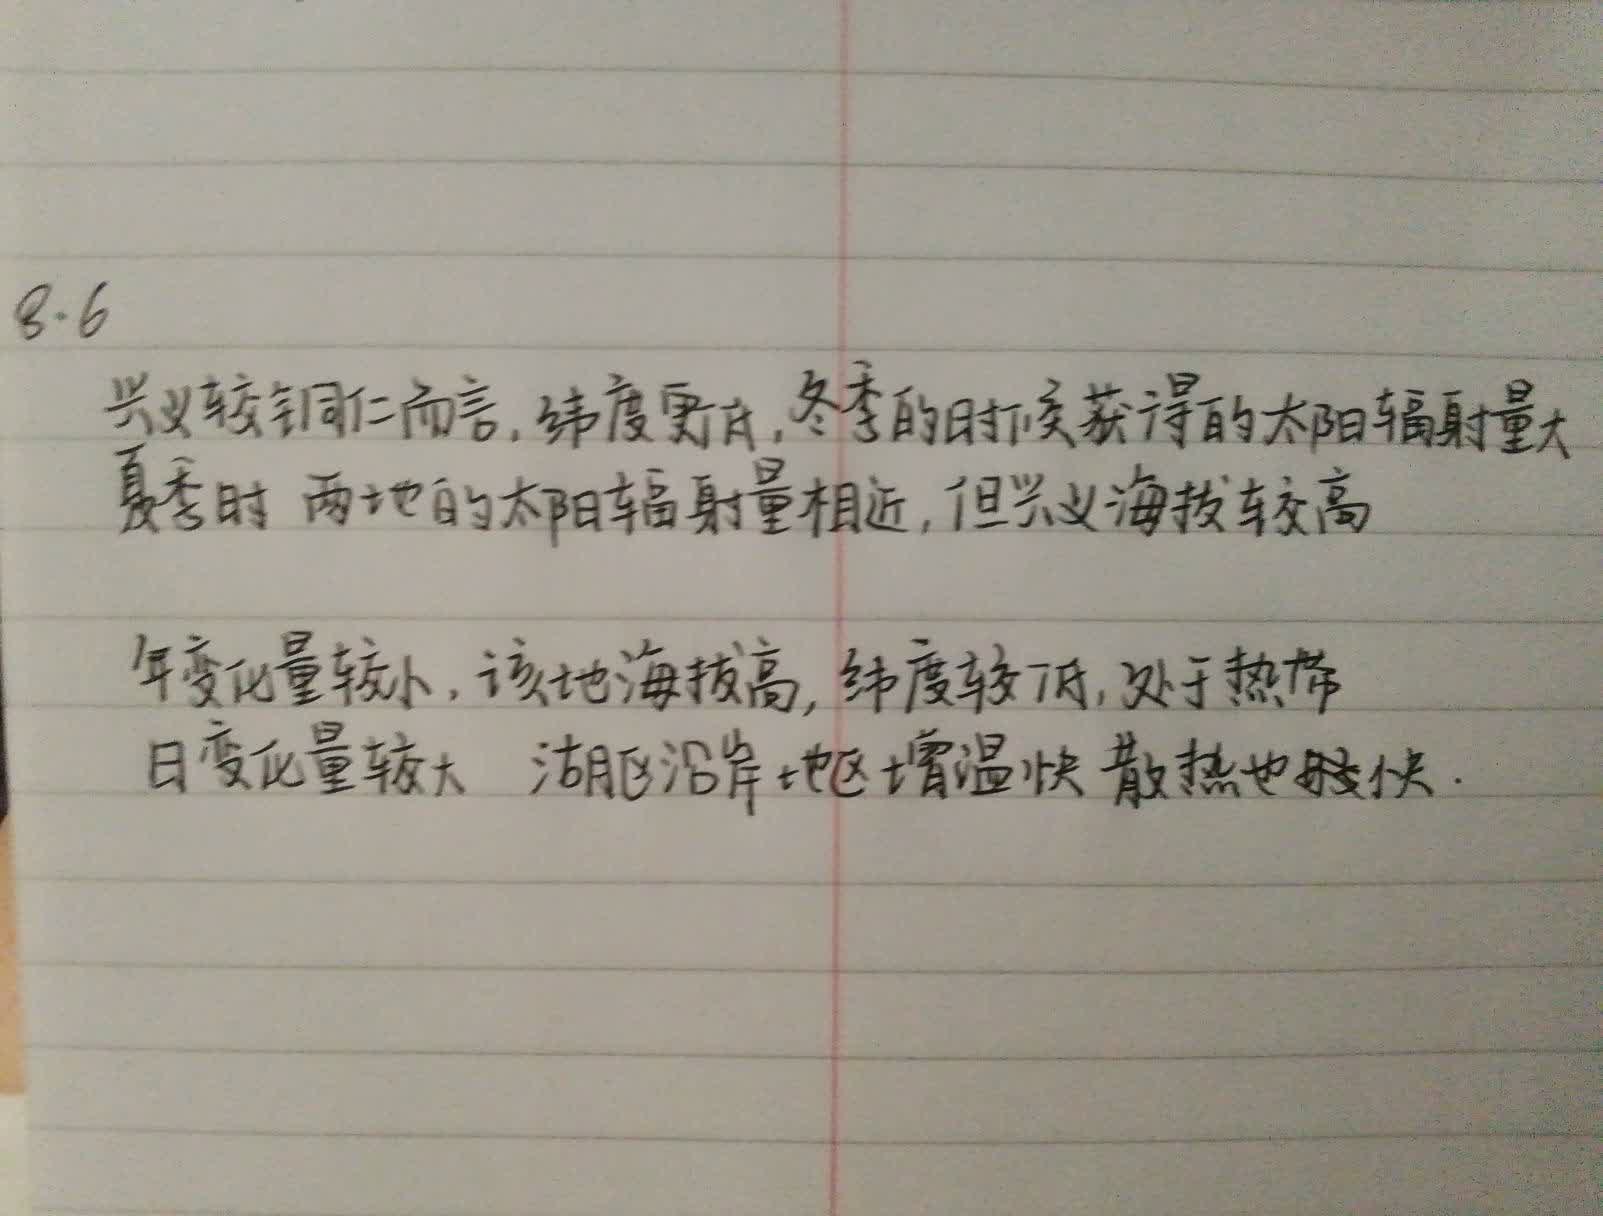 8.6
兴义较铜仁而言,纬度更低,冬季的时候获得的太阳辐射量大
夏季时 两地的太阳辐射量相近,但兴义海拔较高
年变化量较小,该地海拔高,纬度较低,处于热带
日变化量较大 湖区沿岸地区增温快 散热也较快.